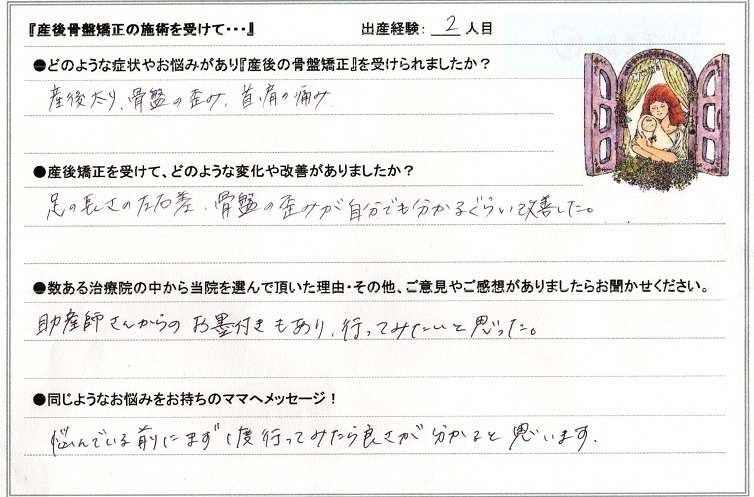 『産後骨盤矯正の施術を受けて・・・』 出産経験: 2 人目
●どのような症状やお悩みがあり『産後の骨盤矯正』を受けられましたか？
産後太り、骨盤の歪み、首、肩の痛み
●産後矯正を受けて、どのような変化や改善がありましたか？
足の長さの左右差、骨盤の歪みが自分でも分かるぐらい改善した。
●数ある治療院の中から当院を選んで頂いた理由・その他、ご意見やご感想がありましたらお聞かせください。
助産師さんからのお墨付きもあり、行ってみたいと思った。
●同じようなお悩みをお持ちのママへメッセージ！
悩んでいる前にまず1度行ってみたら良さが分かると思います。